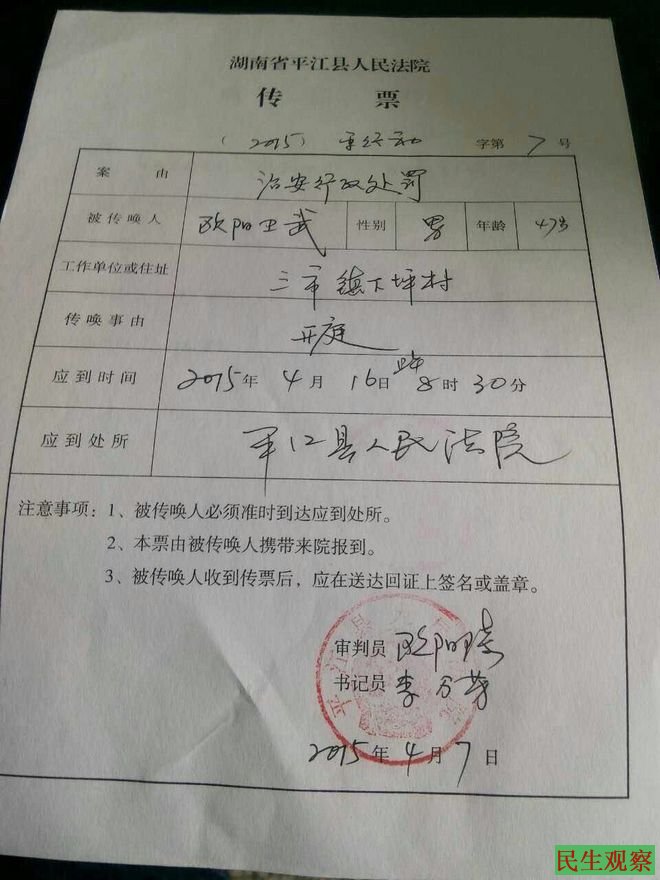 湖南省平江县人民法院
传 票
（2015）平行初 字第 7 号
案 由 治安行政处罚
被传唤人 欧阳卫武 性别 男 年龄 47岁
工作单位或住址 三市镇下坪村
传唤事由 开庭
应到时间 2015年 4月 16日 8时 30分
应到处所 平江县人民法院
注意事项：1、被传唤人必须准时到达应到处所。
2、本票由被传唤人携带来院报到。
3、被传唤人收到传票后，应在送达回证上签名或盖章。
审判员 欧阳
书记员 李
2015年 4月 7日
民生观察